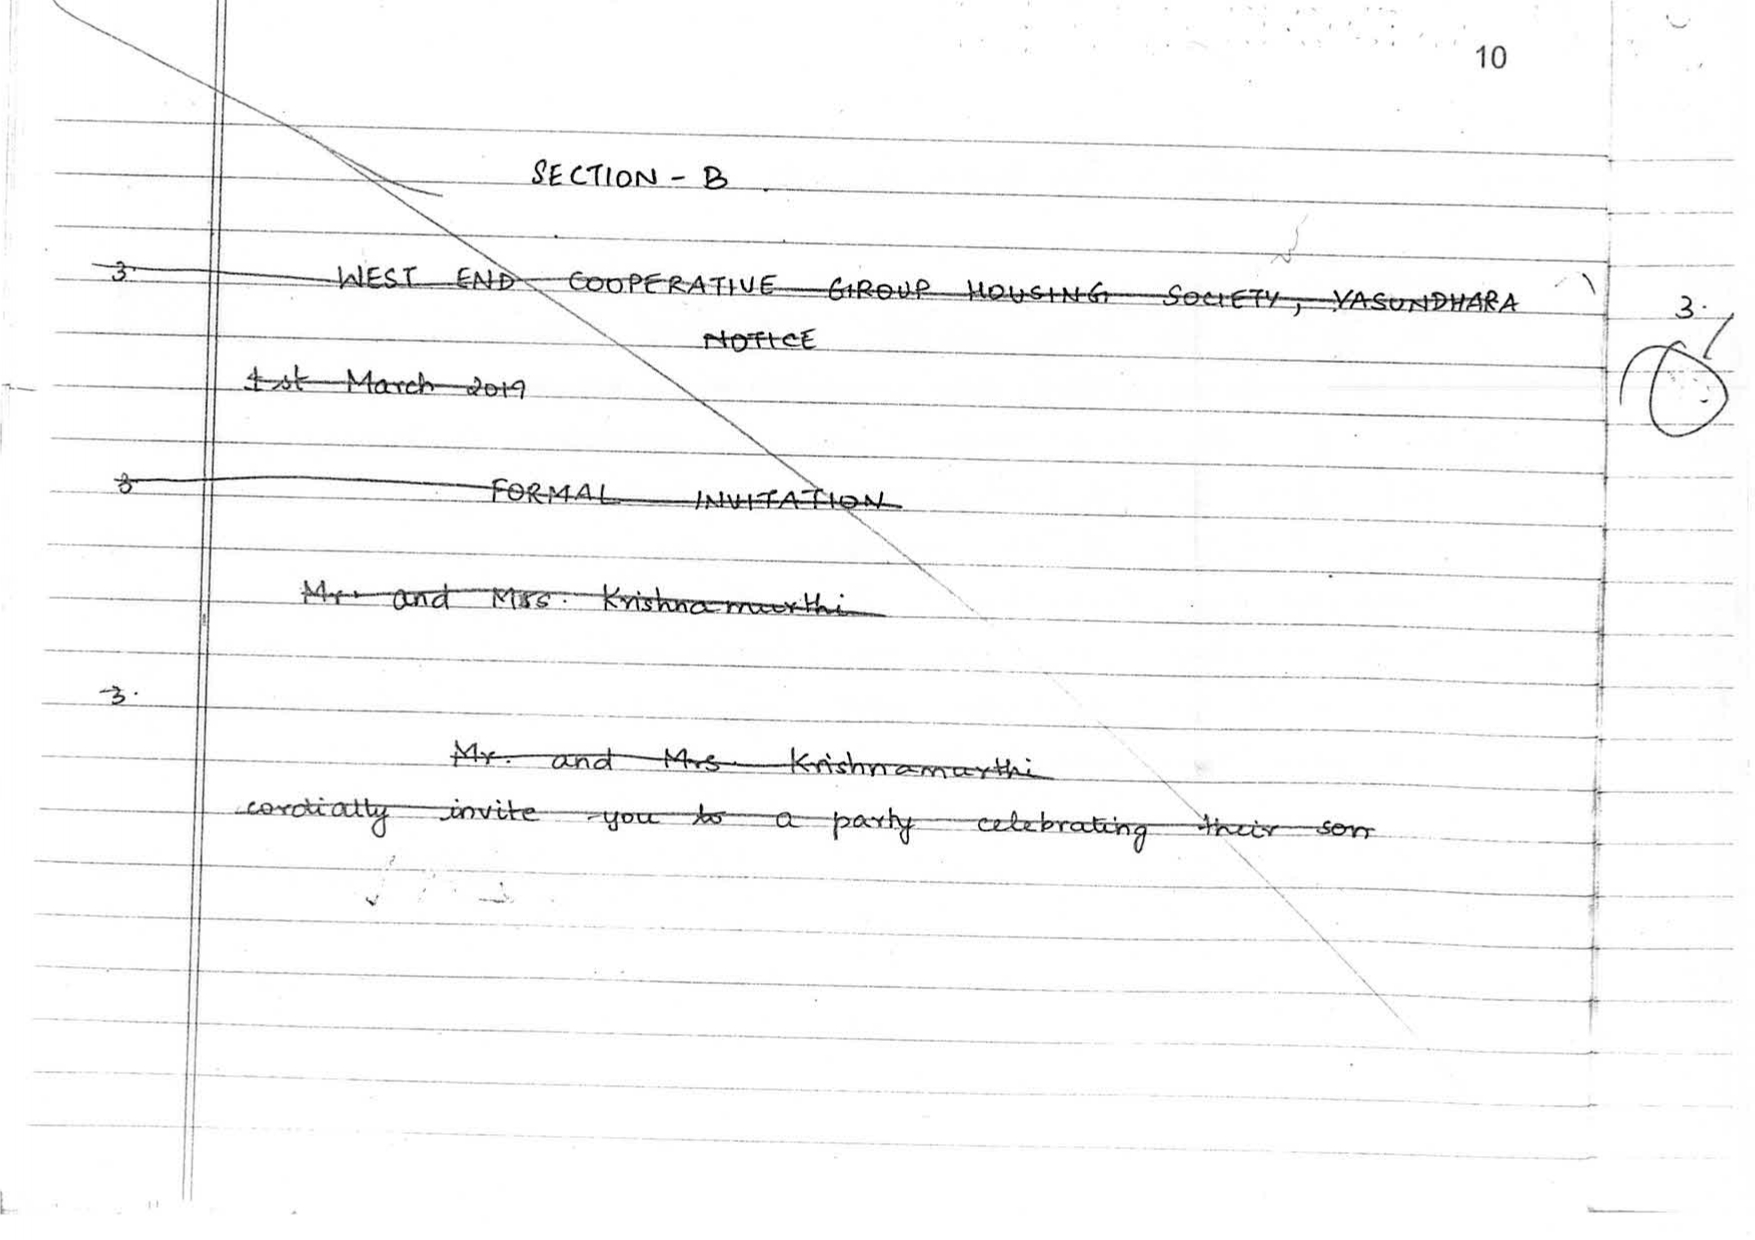 10
SECTION - B
3. WEST END COOPERATIVE GROUP HOUSING SOCIETY, VASUNDHARA 3.
NOTICE
1st March 2019
3 FORMAL INVITATION
Mr. and Mrs. Krishnamurthi
3.
Mr. and Mrs. Krishnamurthi
cordially invite you to a party celebrating their son